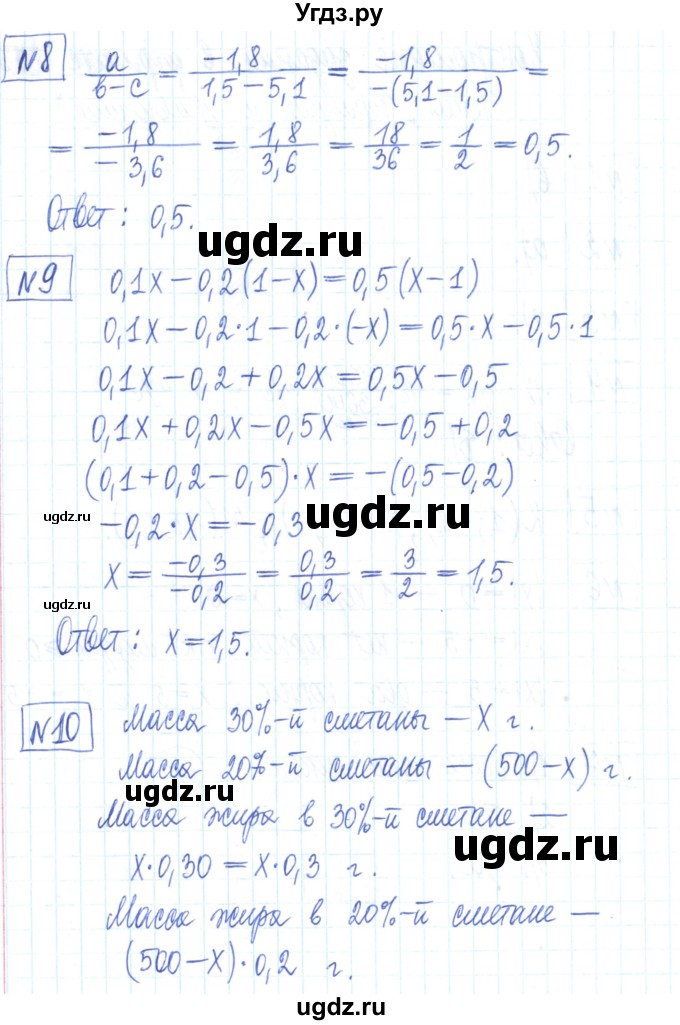 Угдз.ру
№8 a/(в−c) = −1,8/(1,5−5,1) = −1,8/−(5,1−1,5) =
= −1,8/−3,6 = 1,8/3,6 = 18/36 = 1/2 = 0,5.
Ответ: 0,5.
ugdz.ru
№9 0,1x−0,2(1−x)=0,5(x−1)
ugdz.ru
0,1x−0,2·1−0,2·(−x)=0,5·x−0,5·1
0,1x−0,2+0,2x=0,5x−0,5
0,1x+0,2x−0,5x=−0,5+0,2
(0,1+0,2−0,5)·x=−(0,5−0,2)
ugdz.ru
−0,2·x=−0,3
ugdz.ru
x = −0,3/−0,2 = 0,3/0,2 = 3/2 = 1,5.
ugdz.ru
Ответ: x=1,5.
№10 Масса 30%-й сметаны — x г.
Масса 20%-й сметаны — (500−x) г.
ugdz.ru
Масса жира в 30%-й сметане —
ugdz.ru
x·0,30=x·0,3 г.
Масса жира в 20%-й сметане —
(500−x)·0,2 г.
ugdz.ru